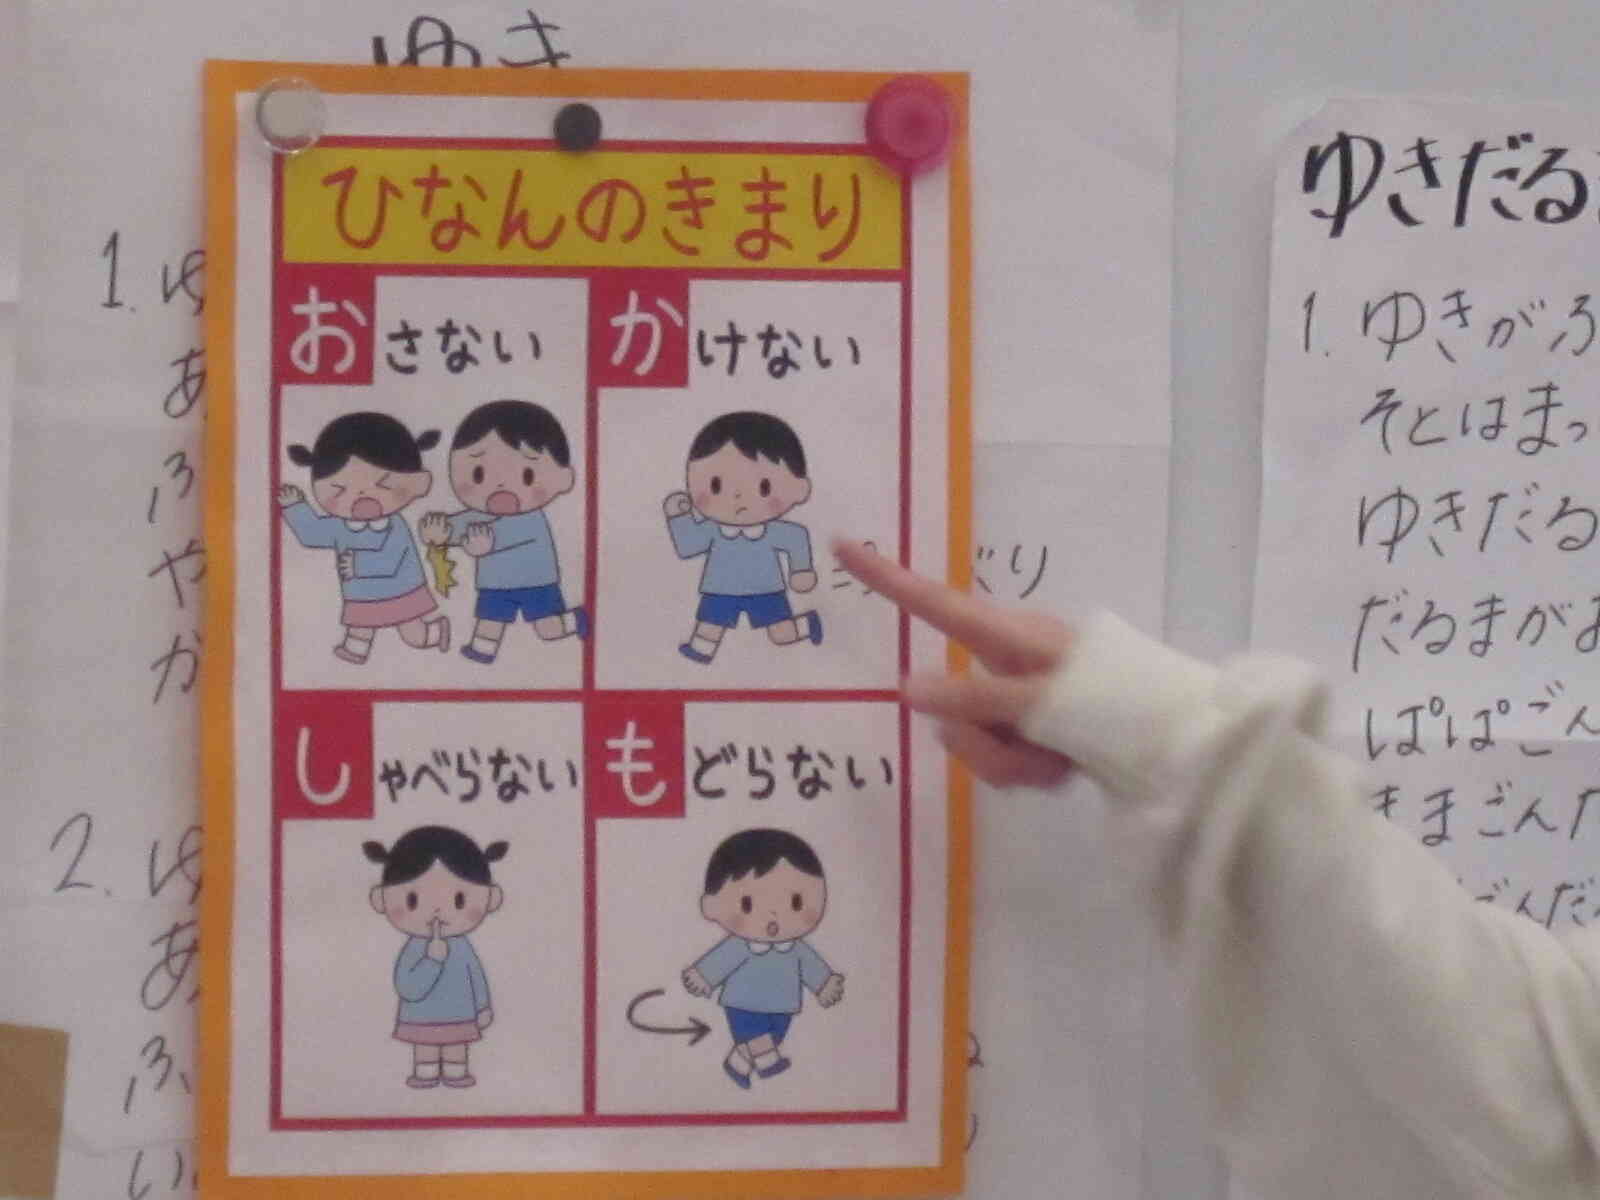 ゆき
ひなんのきまり
おさない
かけない
しゃべらない
もどらない
1. ゆ
あ
ふ
や
か
2. ゆ
あ
ふ
い
り
ゆきだる
1. ゆきがふ
そとはまっ
ゆきだる
だるまがお
ぱぱごん
きまごんだ
ごんだ